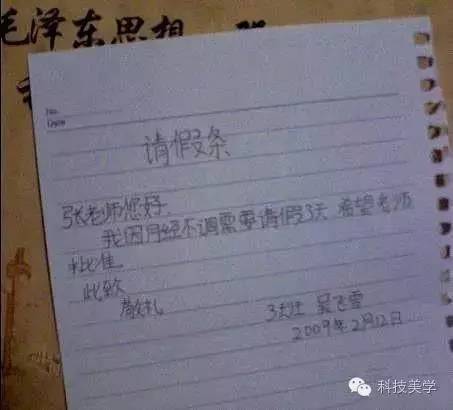 毛泽东思想
No.
Date
请假条
张老师您好
我因月经不调需要请假3天 希望老师
批准
此致
敬礼
吴飞雪
2009年2月12日
科技美学